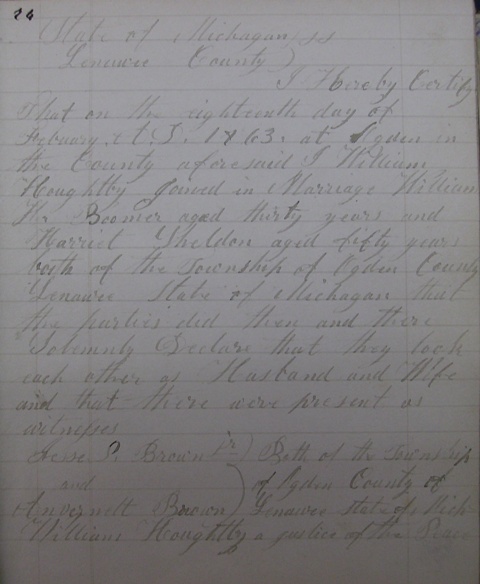 24
State of Michagan ) ss
Lenawee County )
I Hereby Certify
That on the eighteenth day of
Febuary A.D. 1863. at Ogden in
the County aforesaid I William
Houghtby Joined in Marriage William
Hr Boomer aged thirty years and
Harriet Sheldon aged fifty years
both of the Township of Ogden County
Lenawee State of Michagan that
the parties did then and there
Solemnly Declare that they took
each other as Husband and Wife
and that there were present as
witnesses
Jesse P. Brown Jr ) Both of the Township
and ) of Ogden County of
Brown ) Lenawee State of Mich
William Houghtby a justice of the Peace